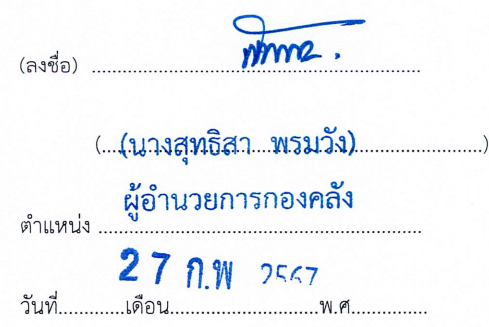 (ลงชื่อ) ....................................................................
(....(นางสุทธิสา พรมวัง)............................)
ผู้อำนวยการกองคลัง
ตำแหน่ง ....................................................................
27 ก.พ 2567
วันที่.............เดือน..............................พ.ศ...............